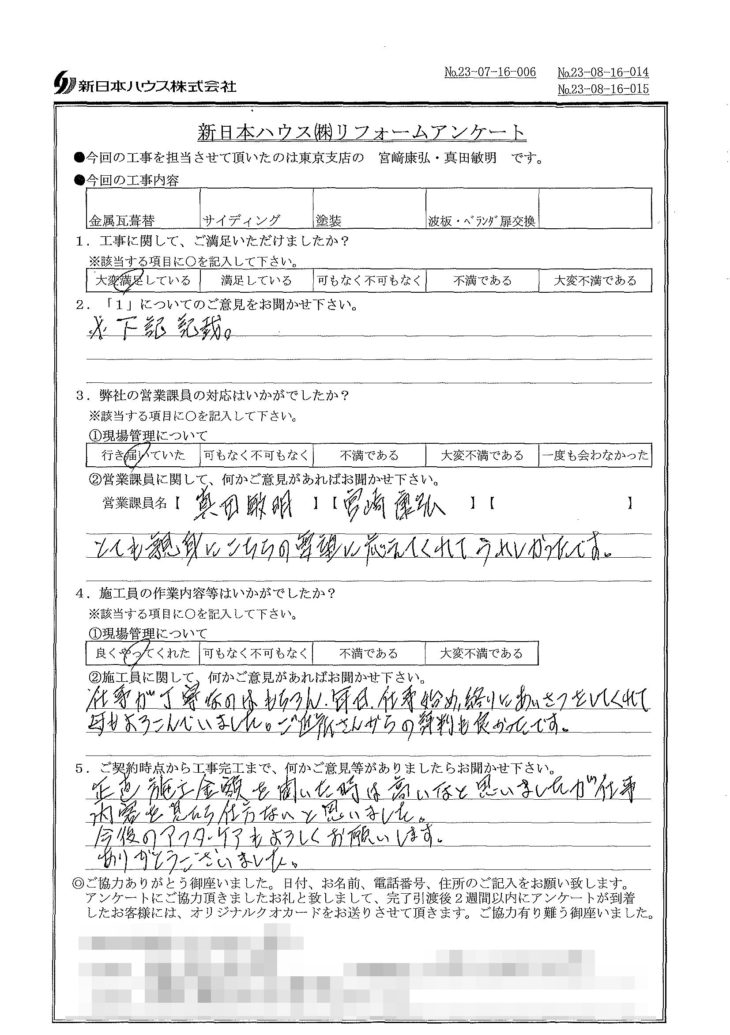 新日本ハウス株式会社
No.23-07-16-006 No.23-08-16-014
No.23-08-16-015
新日本ハウス㈱リフォームアンケート
●今回の工事を担当させて頂いたのは東京支店の 宮﨑康弘・真田敏明 です。
●今回の工事内容
金属瓦葺替 サイディング 塗装 波板・ベランダ扉交換
1．工事に関して、ご満足いただけましたか？
※該当する項目に○を記入して下さい。
大変満足している 満足している 可もなく不可もなく 不満である 大変不満である
2．「1」についてのご意見をお聞かせ下さい。
※下記記載。
3．弊社の営業課員の対応はいかがでしたか？
※該当する項目に○を記入して下さい。
①現場管理について
行き届いていた 可もなく不可もなく 不満である 大変不満である 一度も会わなかった
②営業課員に関して、何かご意見があればお聞かせ下さい。
営業課員名【 真田敏明 】【宮崎康弘 】【 】
とても親身にこちらの要望に応えてくれてうれしかったです。
4．施工員の作業内容等はいかがでしたか？
※該当する項目に○を記入して下さい。
①現場管理について
良くやってくれた 可もなく不可もなく 不満である 大変不満である
②施工員に関して、何かご意見があればお聞かせ下さい。
仕事が丁寧なのはもちろん、毎日、仕事始め、終りとあいさつをしてくれて
母もよろこんでいました。ご近所さんからの評判も良かったです。
5．ご契約時点から工事完工まで、何かご意見等がありましたらお聞かせ下さい。
正直施工金額を聞いた時は高いなと思いましたが仕事
内容を見たら仕方ないと思いました。
今後のアフターケアもよろしくお願いします。
ありがとうございました。
◎ご協力ありがとう御座いました。日付、お名前、電話番号、住所のご記入をお願い致します。
アンケートにご協力頂きましたお礼と致しまして、完了引渡後2週間以内にアンケートが到着
したお客様には、オリジナルクオカードをお送りさせて頂きます。ご協力有り難う御座いました。